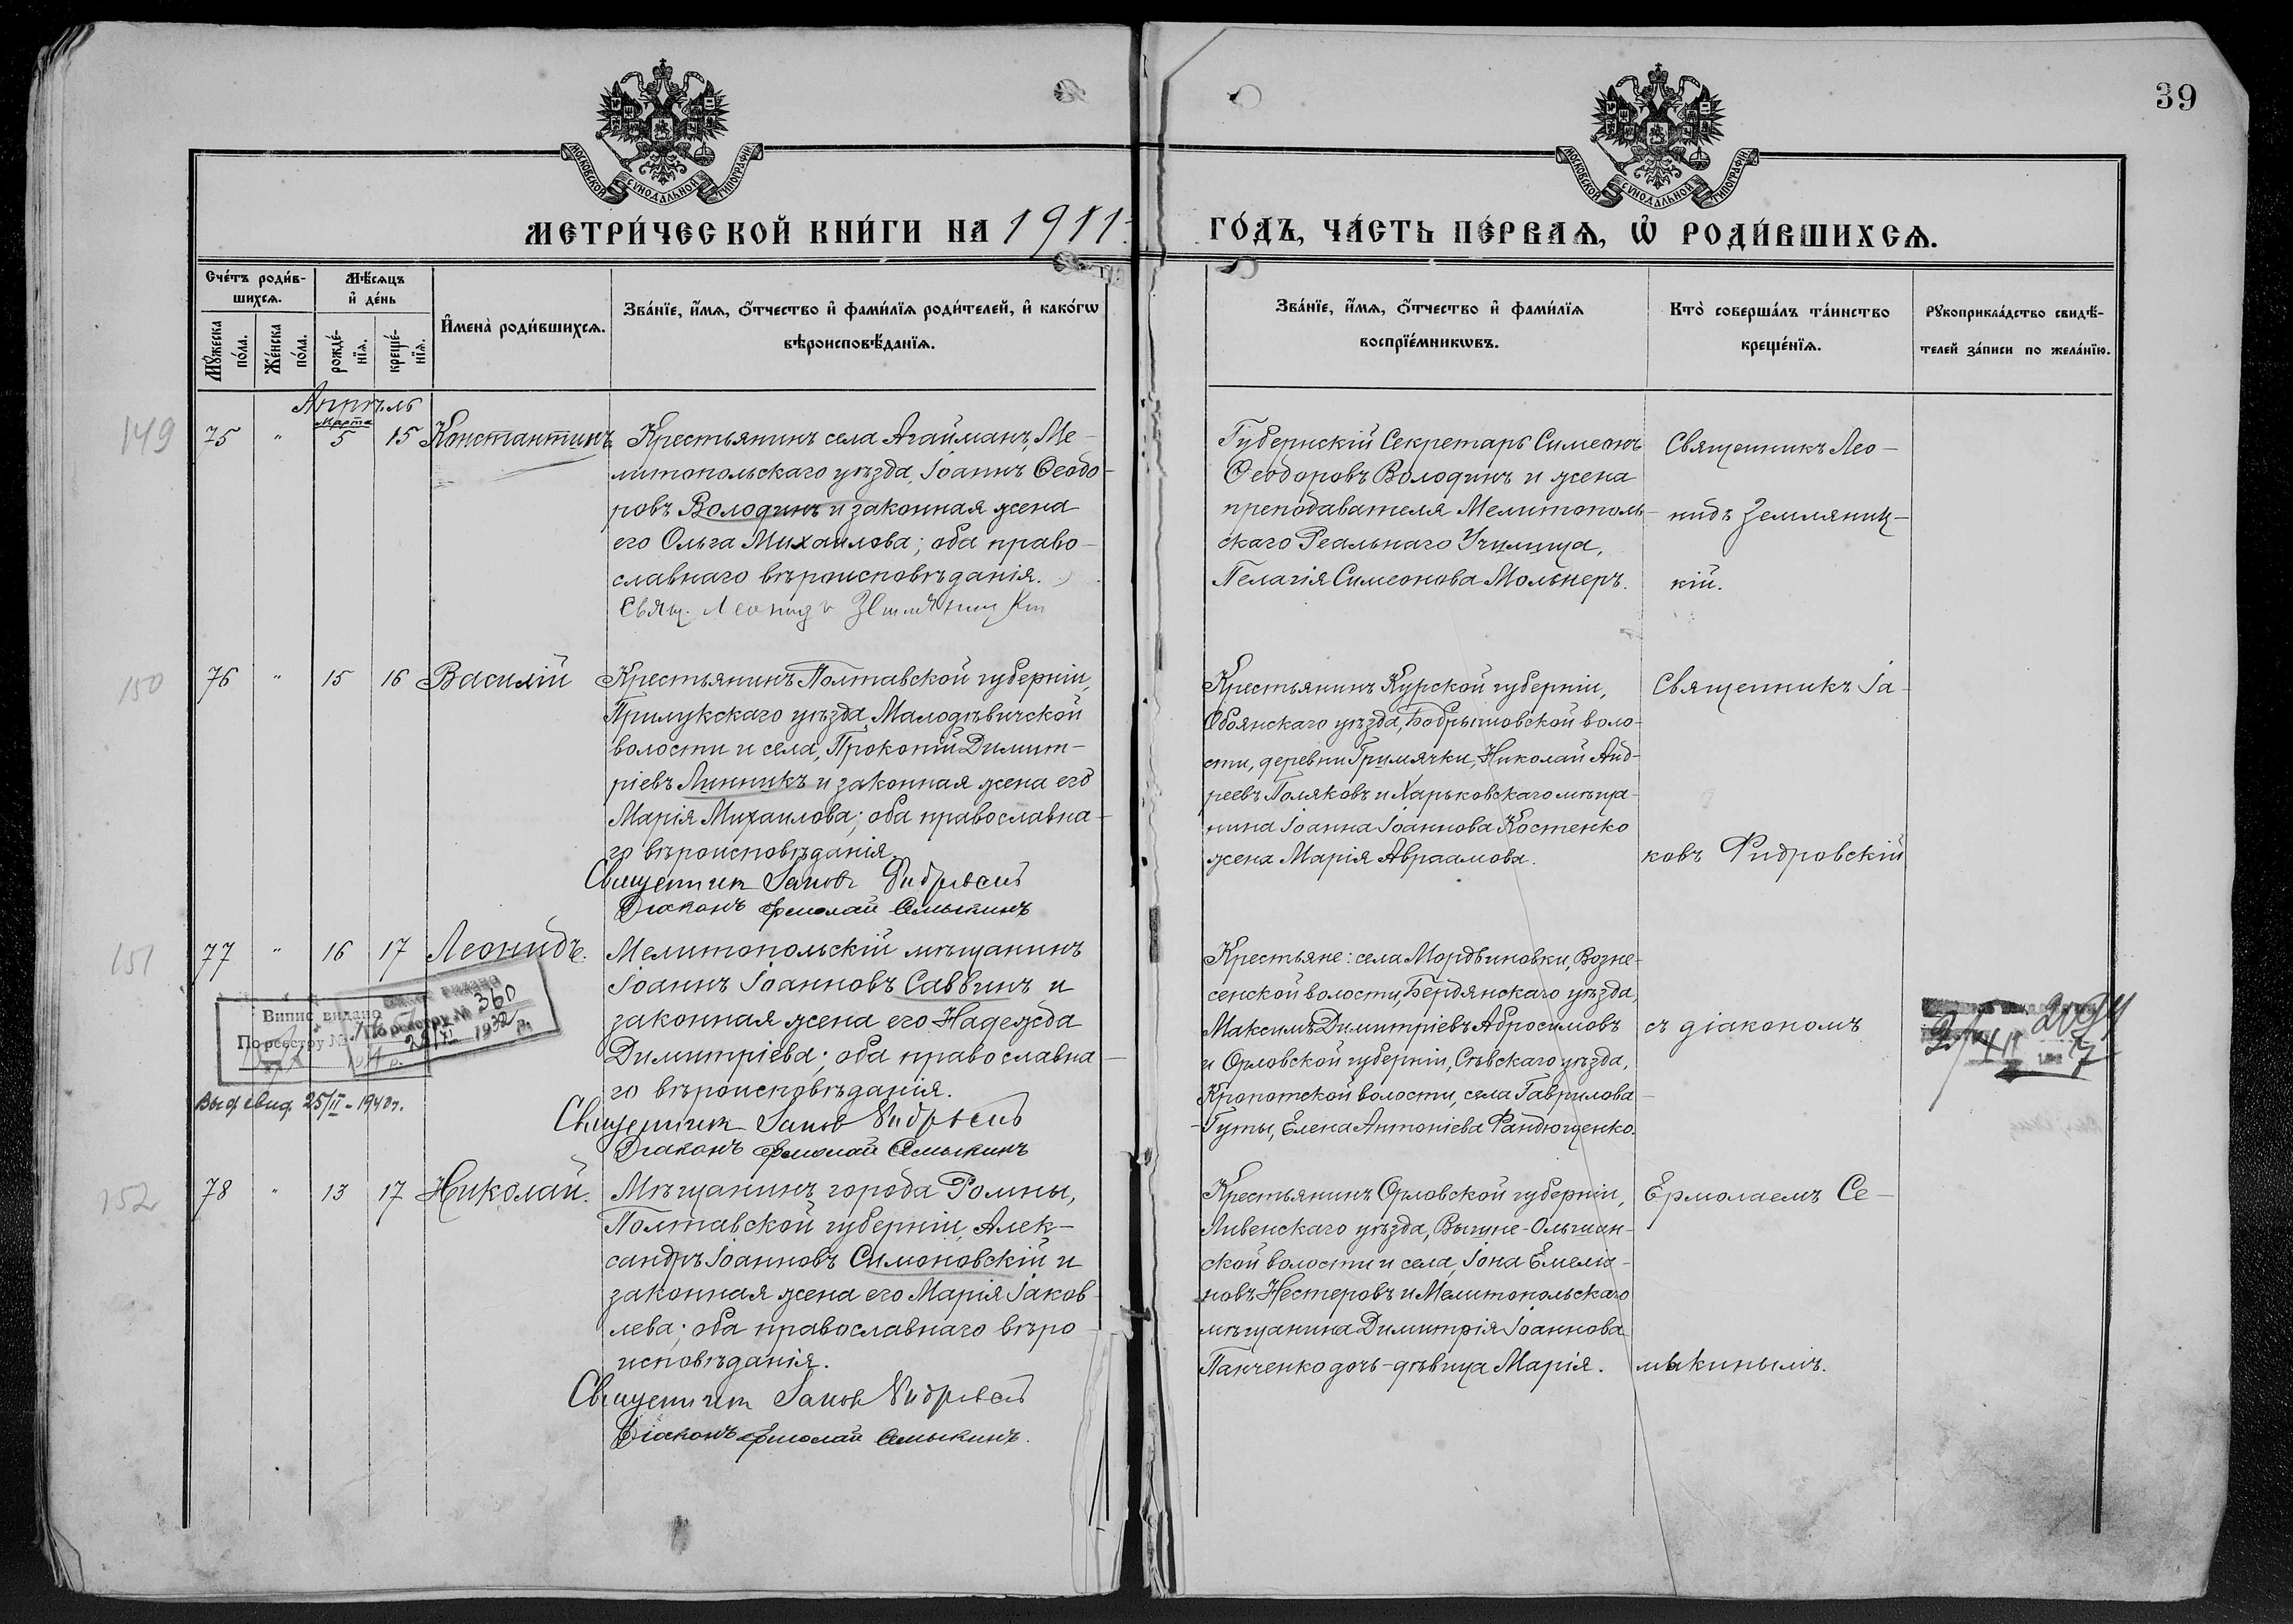 39
МОСКОВСКОЙ СѴНОДАЛЬНОЙ ТИПОГРАФІИ
МОСКОВСКОЙ СѴНОДАЛЬНОЙ ТИПОГРАФІИ
МЕТРИ́ЧЕСКОЙ КНИ́ГИ НА 1911
ГО́ДЪ, ЧА́СТЬ ПЕ́РВАѦ, Ѽ РОДИ́ВШИХСѦ.
Сче́тъ роди́в-
шихсѧ.
Мѣ́сѧцъ
и҆ де́нь
Мꙋ́жеска
по́ла.
Же́нска
по́ла.
рожде́-
нїѧ.
креще́-
нїѧ.
И҆мена̀ роди́вшихсѧ.
Зва́нїе, и҆́мѧ, ѻ҆́тчество и҆ фами́лїѧ роди́телей, и҆ како́гѡ
вѣроисповѣ́данїѧ.
Зва́нїе, и҆́мѧ, ѻ҆́тчество и҆ фами́лїѧ
воспрїе́мникѡвъ.
Кто̀ соверша́лъ та́инство
креще́нїѧ.
Рꙋкоприкла́дство свидѣ́-
телей за́писи по жела́нїю.
Апрѣль
149
75 " Марта 5 15 Константинъ
Крестьянинъ села Агайманъ, Ме-
литопольскаго уѣзда, Іоаннъ Ѳеодо-
ровъ Володинъ и законная жена
его Ольга Михаилова; оба право-
славнаго вѣроисповѣданія.
Свящ. Леонидъ Земляницкій
Губернскій Секретарь Симеонъ
Ѳеодоровъ Володинъ и жена
преподавателя Мелитополь-
скаго Реальнаго Училища,
Пелагія Симеонова Мольнеръ.
Священникъ Лео-
нидъ Земляниц-
кій.
150
76 " 15 16 Василій
Крестьянинъ Полтавской губерніи,
Прилукскаго уѣзда, Малодѣвичской
волости и села, Прокопій Димит-
ріевъ Линникъ и законная жена его
Марія Михаилова; оба православна-
го вѣроисповѣданія.
Священникъ Іаковъ
Діаконъ Ермолай Семыкинъ
Крестьянинъ Курской губерніи,
Обоянскаго уѣзда, Бобрышовской воло-
сти, деревни Гримячки, Николай Анд-
реевъ Поляковъ и Харьковскаго мѣща-
нина Іоанна Іоаннова Костенко
жена Марія Авраамова.
Священникъ Іа-
ковъ Фидровскій
151
77 " 16 17 Леонидъ.
Мелитопольскій мѣщанинъ
Іоаннъ Іоанновъ Саввинъ и
законная жена его Надежда
Димитріева; оба православна-
го вѣроисповѣданія.
Священникъ Іаковъ
Діаконъ Ермолай Семыкинъ
Випис видано
По реєстру №
видано
По реєстру № 360
1932 р.
Выд. свид. 25/II - 1940 г.
Крестьяне: села Мордвиновки, Возне-
сенской волости, Бердянскаго уѣзда,
Максимъ Димитріевъ Абросимовъ
и Орловской губерніи, Сѣвскаго уѣзда,
Кропотской волости, села Гаврилова-
-Гуты, Елена Антоніева Фандющенко.
съ діакономъ
152
78 " 13 17 Николай.
Мѣщанинъ города Ромны,
Полтавской губерніи, Алек-
сандръ Іоанновъ Симоновскій и
законная жена его Марія Іаков-
лева; оба православнаго вѣро-
исповѣданія.
Священникъ Іаковъ
Діаконъ Ермолай Семыкинъ.
Крестьянинъ Орловской губерніи,
Ливенскаго уѣзда, Вышне-Ольшан-
ской волости и села, Іона Емелья-
новъ Нестеровъ и Мелитопольскаго
мѣщанина Димитрія Іоаннова
Панченко дочь-дѣвица Марія.
Ермолаемъ Се-
мыкинымъ.